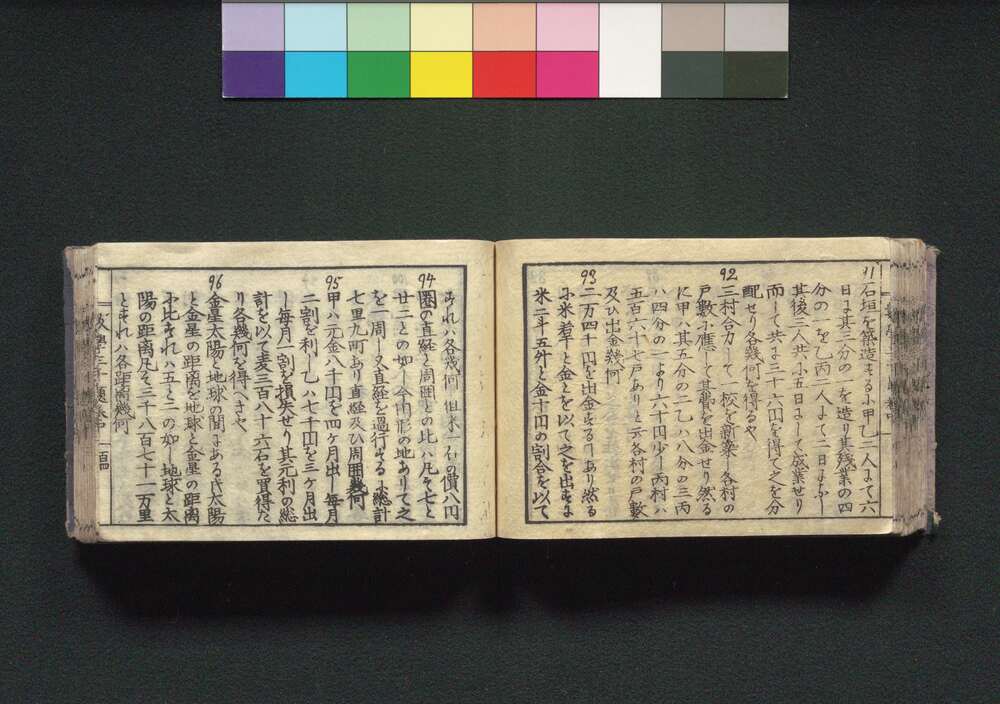 91
石垣を築造するに甲乙二人にて六
日に其三分の一を造り其残業の四
分の一を乙丙二人にて二日に為し
其後三人共に五日にして成業せり
而して共に三十六円を得て之を分
配せり各幾何を得るや
92
三村合力して一校を新築し各村の
戸数に應じて其費を出金せり然る
に甲ハ其五分の二乙ハ八分の三丙
ハ四分の一より六十円少し丙村ハ
五百六十七戸ありと云各村の戸数
及ひ出金幾何
93
二万四十円を出金するものあり然る
に米若干と金とを以て之を出すに
米二斗五升と金十円の割合を以て
すれハ各幾何但米一石の價八円
94
圏の直経と周囲との比ハ凡そ七と
廿二との如し今円形の地ありて之
を一周し又直経を過行するに総計
七里九町あり直経及ひ周囲幾何
95
甲ハ元金八十円を四ケ月出し毎月
二割を利し乙ハ七十円を三ケ月出
し毎月一割を損失せり其元利の総
計を以て麦三百八十六石を買得た
り各幾何を得へきや
96
金星太陽と地球の間にある氏太陽
と金星の距离を地球と金星の距离
に比すれハ五と二の如し地球と太
陽の距离凡そ三千八百七十一万里
とすれハ各距离幾何
数學三千題巻中
百四